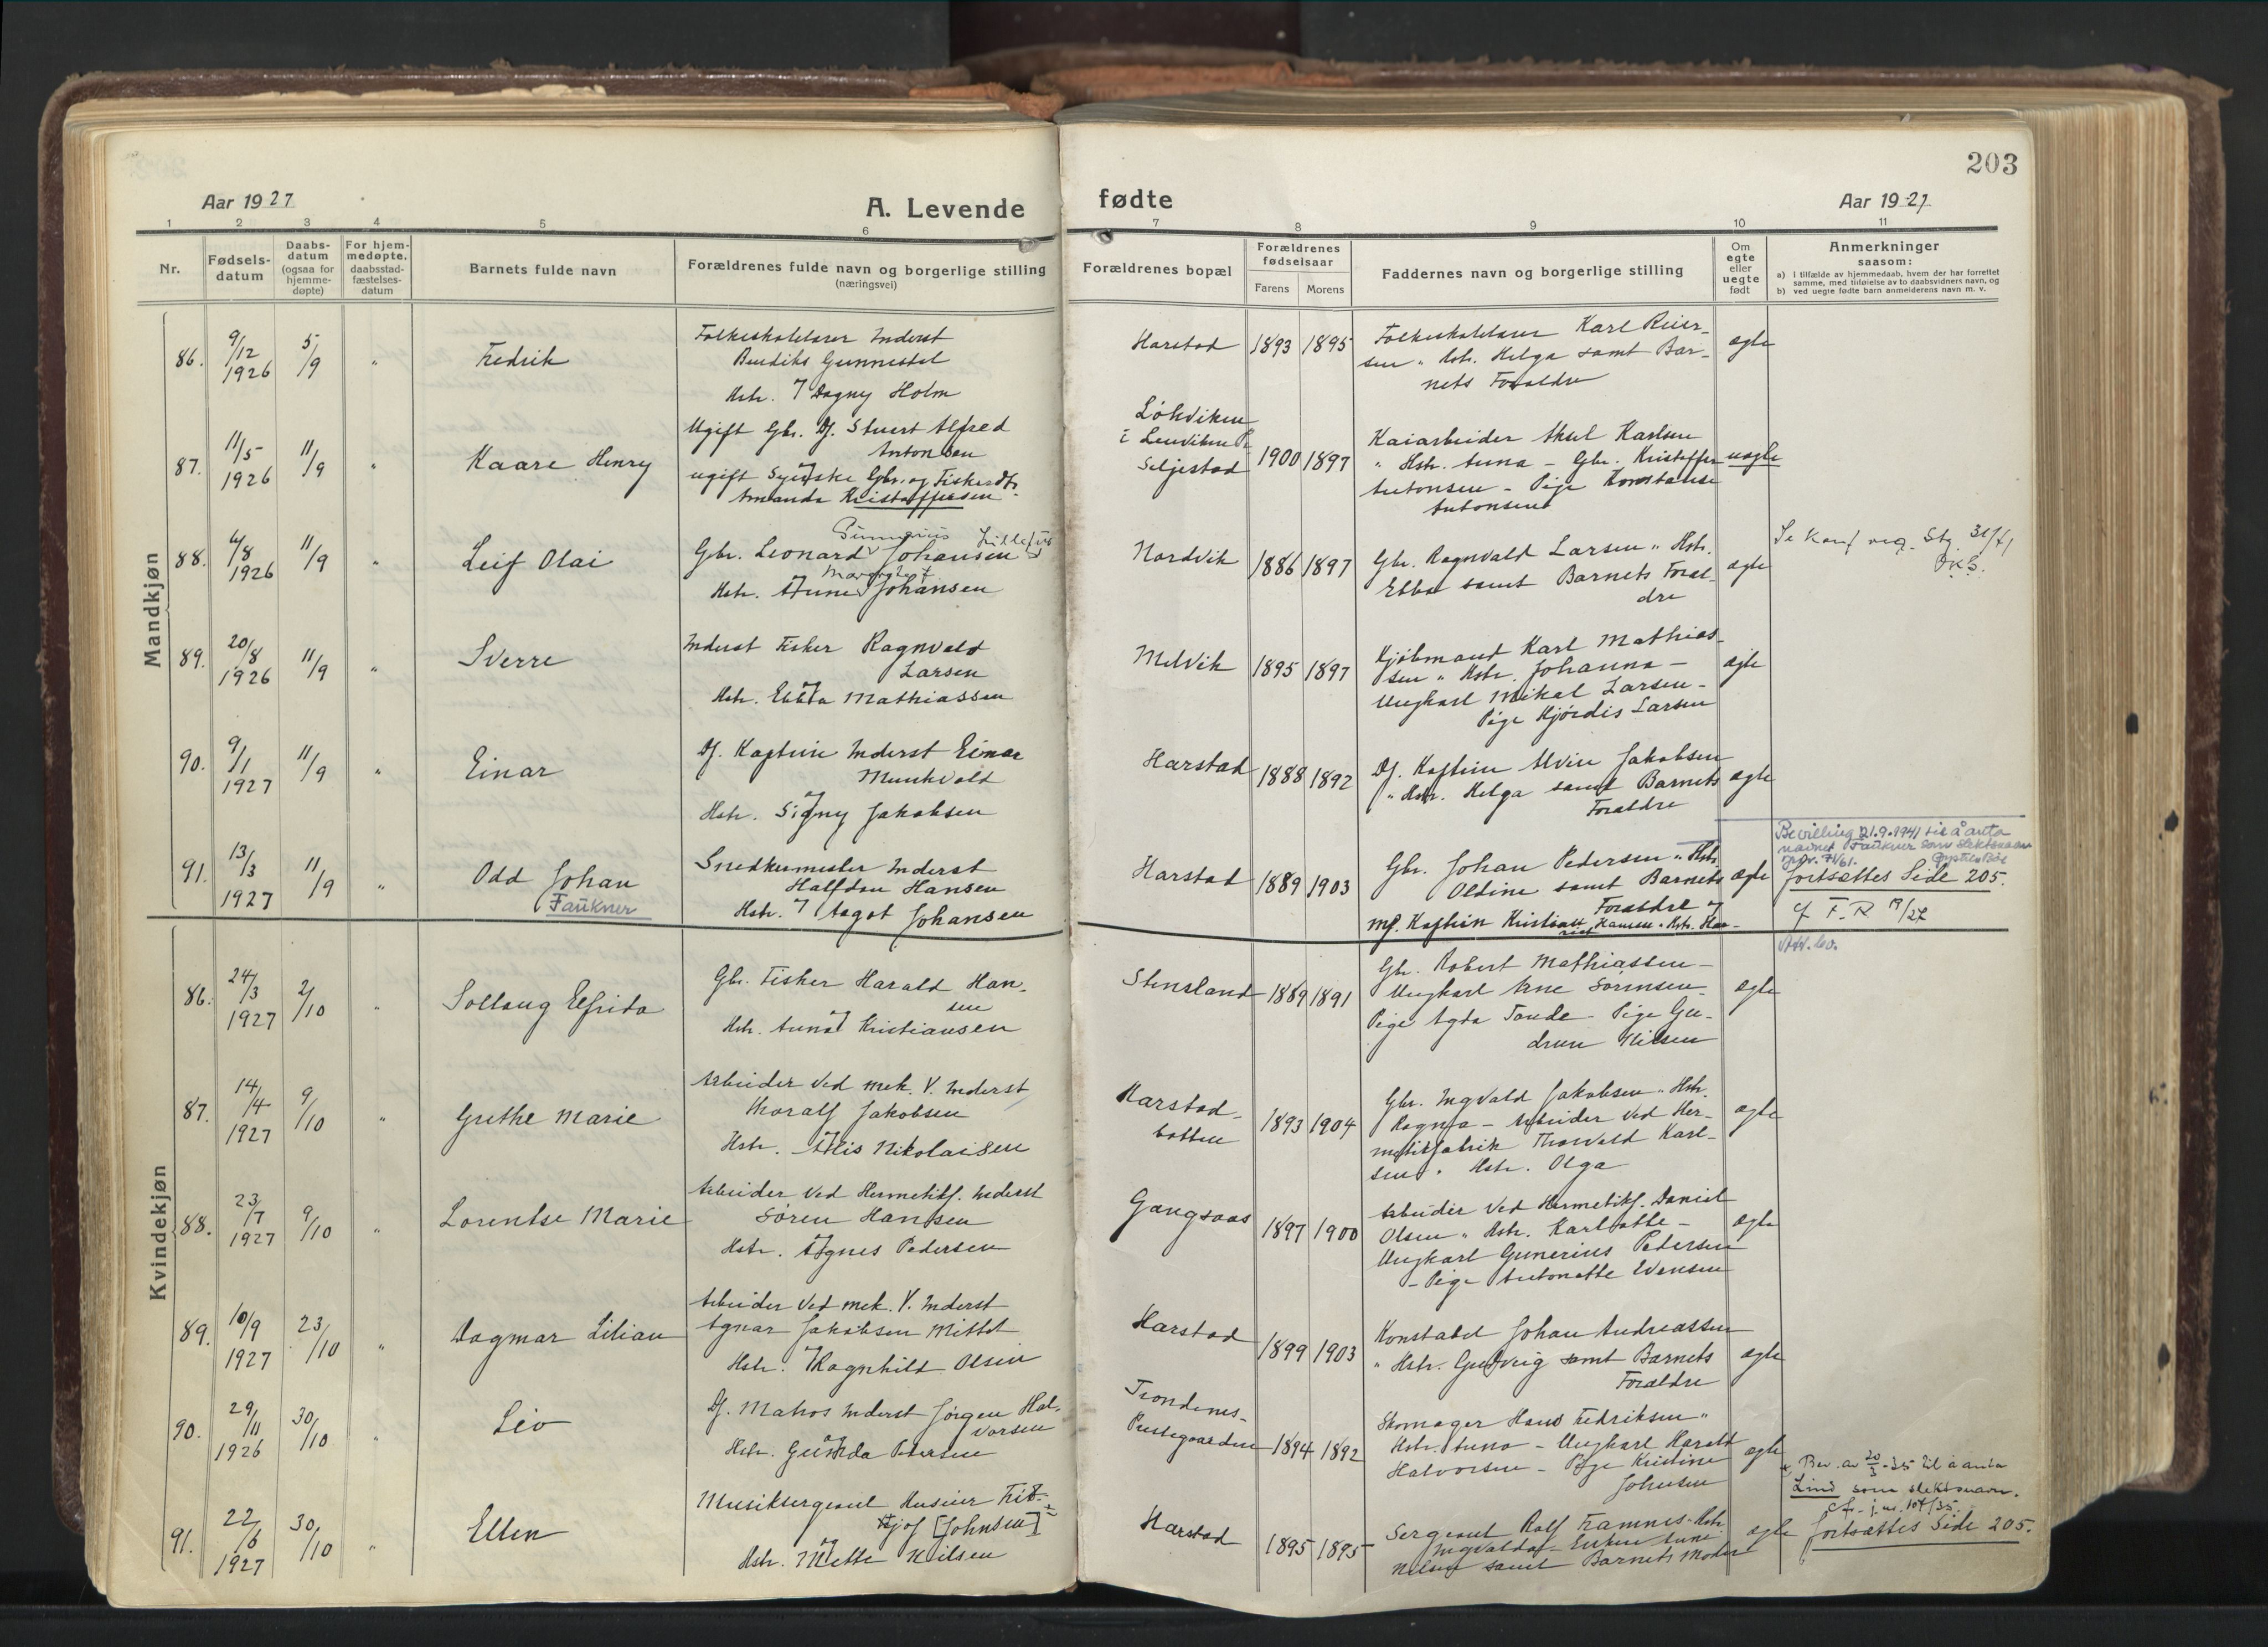 203
Aar 1927
A. Levende
fødte
Aar 1927
1 2 3 4 5 6 7 8 9 10 11
Nr.
Fødsels-
datum
Daabs-
datum
(ogsaa for
hjemme-
døpte)
For hjem-
medøpte.
daabsstad-
fæstelses-
datum
Barnets fulde navn
Forældrenes fulde navn og borgerlige stilling
(næringsvei)
Forældrenes bopæl
Forældrenes
fødselsaar
Farens Morens
Faddernes navn og borgerlige stilling
Om
egte
eller
uegte
født
Anmerkninger
saasom:
a) i tilfælde av hjemmedaab, hvem der har forrettet
samme, med tilføielse av to daabsvidners navn, og
b) ved uegte fødte barn anmelderens navn m. v.
Mandkjøn
86. 9/12 1926 5/9 " Fredrik
Folkeskolelærer Inderst
Bendiks Gunnestel
Hstr. Dagny Holm
Harstad 1893 1895
Folkeskolelærer Karl Reier-
sen " Hstr. Helga samt Bar-
nets Forældre
ægte
87. 11/5 1926 11/9 " Kaare Henry
Ugift Gbr. Df. Stuert Alfred
Antonsen
ugift Syerske Gbr. og Fiskerdtr.
Amanda Kristoffersen
i Lenviken P.
Seljestad
1900 1897
Kaiarbeider Aksel Karlsen
" Hstr. Anna - Gbr. Kristoffer
Antonsen - Pige Konstanse
Antonsen
uægte
88. 4/8 1926 11/9 " Leif Olai
Gbr. Leonard Johansen
Hstr. Anne Johansen
Nordvik 1886 1897
Gbr. Ragnvald Larsen " Hstr.
Ebba samt Barnets Foræl-
dre
ægte
89. 20/8 1926 11/9 " Sverre
Inderst Fisker Ragnvald
Larsen
Hstr. Ebba Mathiassen
Melvik 1895 1897
Kjøbmand Karl Mathias-
sen " Hstr. Johanna -
Ungkarl Mikal Larsen -
Pige Hjørdis Larsen
ægte
90. 9/1 1927 11/9 " Einar
Df. Kaptein Inderst Einar
Munkvold
og
Hstr. Signy Jakobsen
Harstad 1888 1892
Df. Kaptein Alvin Jakobsen
" Hstr. Helga samt Barnets
Forældre
ægte
91. 13/3 1927 11/9 " Odd Johan
Faukner
Snedkermester Inderst
Halfdan Hansen
Hstr. Aagot Johansen
Harstad 1889 1903
Gbr. Johan Pedersen " Hstr.
Oldine samt Barnets
Forældre
Mf. Kaptein Kristian Hansen "
ægte
Bevilling 21.9.1941 til å anta
navnet Faukner som slektsnavn
fortsættes Side 205.
cf F. R 19/27
Kvindekjøn
86. 24/3 1927 2/10 " Sollaug Elfrida
Gbr. Fisker Harald Han-
sen
Hstr. Anna Kristiansen
Stensland 1889 1891
Gbr. Robert Mathiassen -
Ungkarl Arne Sørensen -
Pige Agda Tande - Pige Gu-
drun Nilsen
ægte
87. 14/4 1927 9/10 " Grethe Marie
Arbeider ved mek. V. Inderst
Thoralf Jakobsen
Hstr. Alis Nikolaisen
Harstad-
botten
1893 1904
Gbr. Ingvald Jakobsen " Hstr.
Ragna - Arbeider ved Her-
metikfabrik Thorvald Karl-
sen " Hstr. Olga
ægte
88. 23/7 1927 9/10 " Lorentse Marie
Arbeider ved Hermetikf. Inderst
Søren Hansen
Hstr. Agnes Pedersen
Gangsaas 1897 1900
Arbeider ved Hermetikf. Daniel
Olsen " Hstr. Karlotte -
Ungkarl Gunerius Pedersen
- Pige Antonette Evensen
ægte
89. 10/9 1927 23/10 " Dagmar Lilian
Arbeider ved mek. V. Inderst
Agnar Jakobsen Mittet
Hstr. Ragnhild Olsen
Harstad 1899 1903
Konstabel Johan Andreassen
" Hstr. Gudveig samt Barnets
Forældre
ægte
90. 29/11 1926 30/10 " Liv
Df. Matros Inderst Jørgen Hal-
vorsen
Hstr. Gunda Petersen
Trondenes-
Prestegaarden
1894 1892
Skomager Hans Fredriksen "
Hstr. Anna - Ungkarl Harald
Halvorsen - Pige Kristine
Johnsen
ægte
91. 22/6 1927 30/10 " Ellen
Musiksergeant Huseier Frit-
hjof [Johnsen] x
og
Hstr. Mette Nilsen
Harstad 1895 1895
Sergeant Rolf Framnes " Hstr.
Ingvalda - Enken Anne
Nilsen samt Barnets Moder
ægte
x Bev. av 20/3-35 til å anta
Lind som slektsnavn.
cfr. j.nr. 107/35.
fortsættes Side 205.